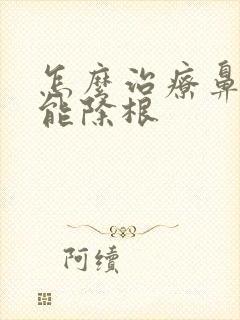 怎麼治療鼻
能除根
阿續